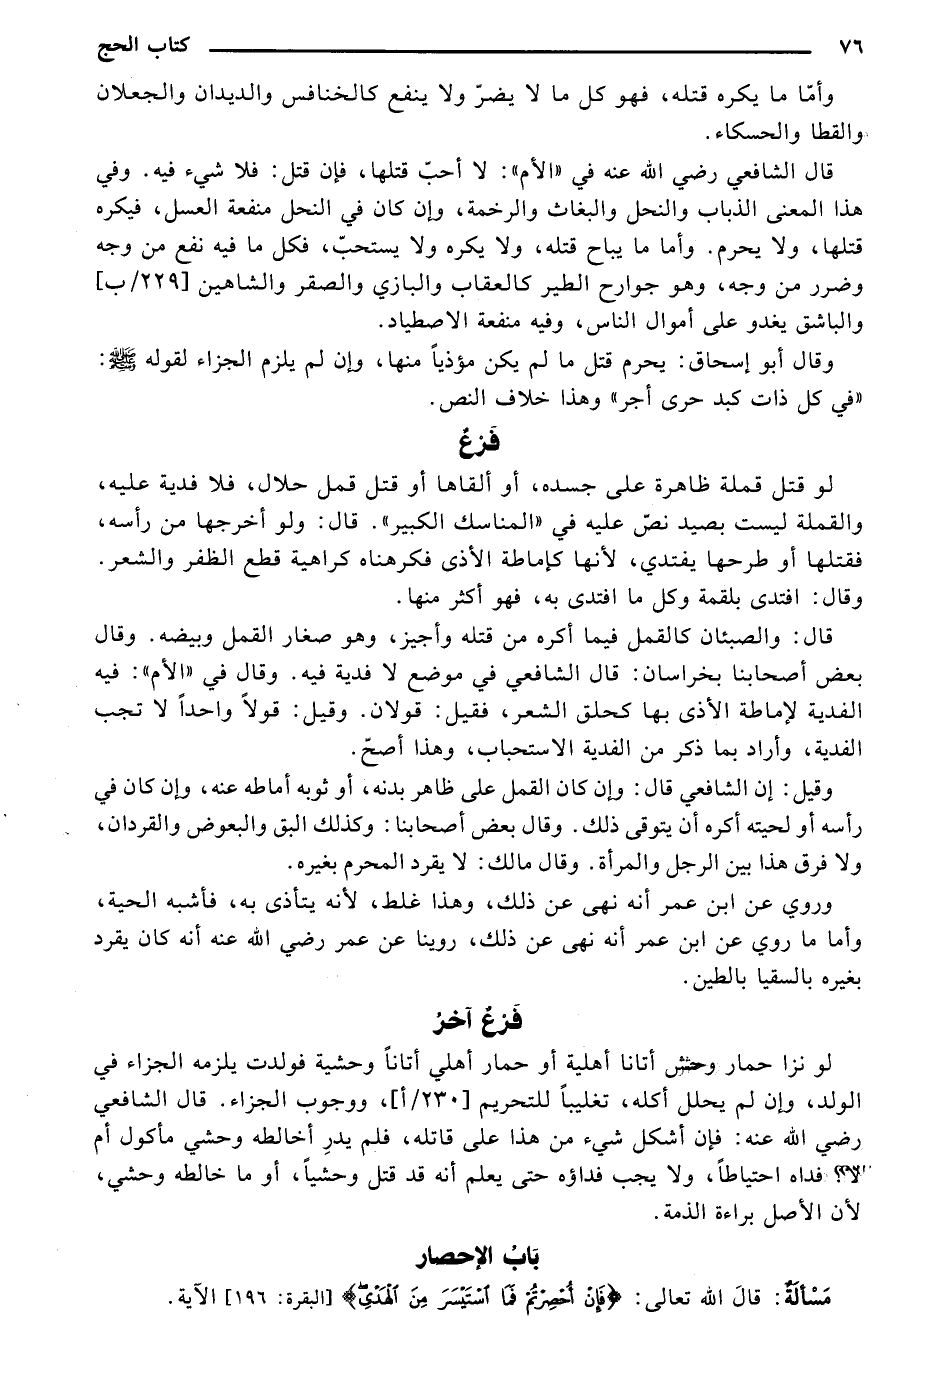 ٧٦ كتاب الحج
وأمّا ما يكره قتله، فهو كل ما لا يضرّ ولا ينفع كالخنافس والديدان والجعلان
والقطا والحسكاء.
قال الشافعي رضي الله عنه في «الأم»: لا أحبّ قتلها، فإن قتل: فلا شيء فيه. وفي
هذا المعنى الذباب والنحل والبغاث والرخمة، وإن كان في النحل منفعة العسل، فيكره
قتلها، ولا يحرم. وأما ما يباح قتله، ولا يكره ولا يستحبّ، فكل ما فيه نفع من وجه
وضرر من وجه، وهو جوارح الطير كالعقاب والبازي والصقر والشاهين [٢٢٩/ب]
والباشق يغدو على أموال الناس، وفيه منفعة الاصطياد.
وقال أبو إسحاق: يحرم قتل ما لم يكن مؤذياً منها، وإن لم يلزم الجزاء لقوله ﷺ:
«في كل ذات كبد حرى أجر» وهذا خلاف النص.
فَرْعٌ
لو قتل قملة ظاهرة على جسده، أو ألقاها أو قتل قمل حلال، فلا فدية عليه،
والقملة ليست بصيد نصّ عليه في «المناسك الكبير». قال: ولو أخرجها من رأسه،
فقتلها أو طرحها يفتدي، لأنها كإماطة الأذى فكرهناه كراهية قطع الظفر والشعر.
وقال: افتدى بلقمة وكل ما افتدى به، فهو أكثر منها.
قال: والصبئان كالقمل فيما أكره من قتله وأجيز، وهو صغار القمل وبيضه. وقال
بعض أصحابنا بخراسان: قال الشافعي في موضع لا فدية فيه. وقال في «الأم»: فيه
الفدية لإماطة الأذى بها كحلق الشعر، فقيل: قولان. وقيل: قولاً واحداً لا تجب
الفدية، وأراد بما ذكر من الفدية الاستحباب، وهذا أصحّ.
وقيل: إن الشافعي قال: وإن كان القمل على ظاهر بدنه، أو ثوبه أماطه عنه، وإن كان في
رأسه أو لحيته أكره أن يتوقى ذلك. وقال بعض أصحابنا: وكذلك البق والبعوض والقردان،
ولا فرق هذا بين الرجل والمرأة. وقال مالك: لا يقرد المحرم بغيره.
وروي عن ابن عمر أنه نهى عن ذلك، وهذا غلط، لأنه يتأذى به، فأشبه الحية،
وأما ما روي عن ابن عمر أنه نهى عن ذلك، روينا عن عمر رضي الله عنه أنه كان يقرد
بغيره بالسقيا بالطين.
فَرْعٌ آخرُ
لو نزا حمار وحش أتانا أهلية أو حمار أهلي أتاناً وحشية فولدت يلزمه الجزاء في
الولد، وإن لم يحلل أكله، تغليباً للتحريم [٢٣٠/أ]، ووجوب الجزاء. قال الشافعي
رضي الله عنه: فإن أشكل شيء من هذا على قاتله، فلم يدرِ أخالطه وحشي مأكول أم
لا؟ فداه احتياطاً، ولا يجب فداؤه حتى يعلم أنه قد قتل وحشياً، أو ما خالطه وحشي،
لأن الأصل براءة الذمة.
بَابُ الإحصار
مَسْألَةٌ: قالَ الله تعالى: ﴿فَإِنْ أُحْصِرْتُمْ فَمَا ٱسْتَيْسَرَ مِنَ ٱلْهَدْيِ﴾ [البقرة: ١٩٦] الآية.